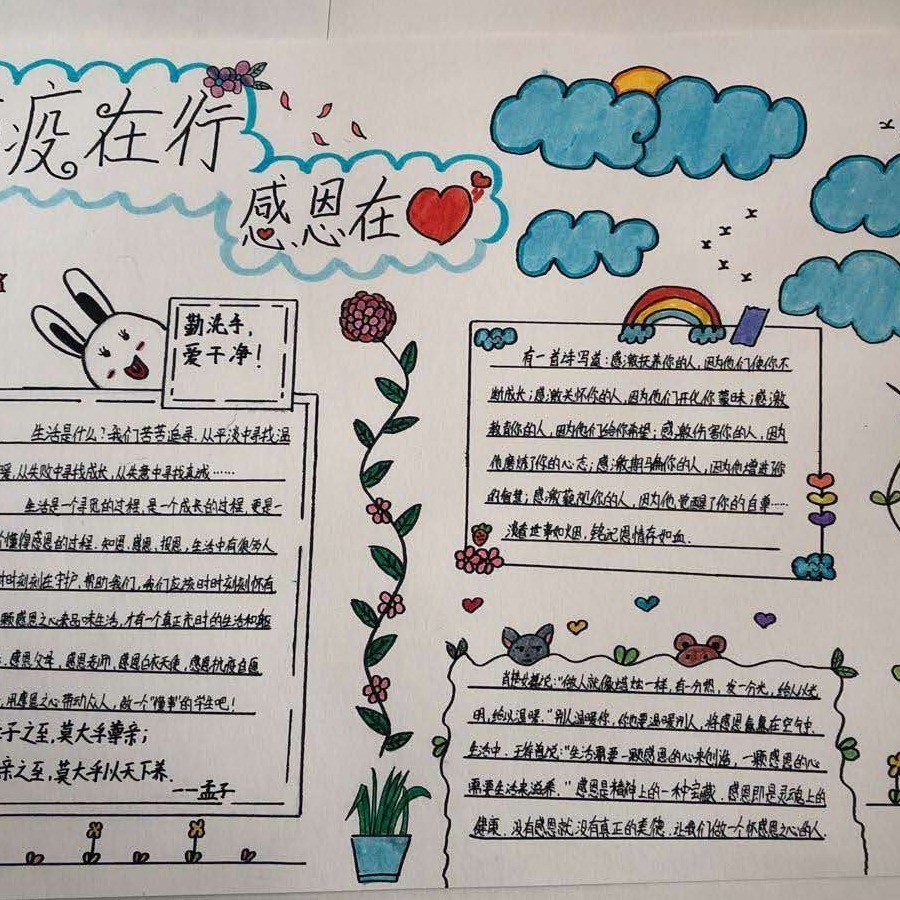 疫在行
感恩在
勤洗手，
爱干净！
生活是什么？我们苦苦追寻。从平淡中寻找温
暖，从失败中寻找成长，从失意中寻找真诚……
生活是一个寻觅的过程，是一个成长的过程，更是一
懂得感恩的过程。知恩、感恩、报恩，生活中有很多人
时时刻刻在守护、帮助我们，我们应该时时刻刻怀有
颗感恩之心来品味生活，才有一个真正充时的生活和
感恩父母，感恩老师，感恩白衣天使，感恩抗疫自愿
用感恩之心带动众人，做一个"懂事"的学生吧！
子之至，莫大乎尊亲；
亲之至，莫大乎以天下养。
——孟子
有一首诗写道：感激抚养你的人，因为他们使你不
断成长；感激关怀你的人，因为他们开化你蒙昧；感激
教育你的人，因为他们给你希望；感激伤害你的人，因为
他磨练了你的心态；感激欺骗你的人，因为他增进了你
的智慧；感激蔑视你的人，因为他觉醒了你的自尊……
漫看世事如烟，铭记恩情存如血。
肖楚女曾说："做人就像蜡烛一样，有一分热，发一分光，给人以光
明，给以温暖。"别人温暖你，你也要温暖别人，将感恩在空气中
生活中。王符曾说："生活需要一颗感恩的心来创造，一颗感恩的心
需要生活来滋养。"感恩是精神上的一种宝藏，感恩即是灵魂上的
健康，没有感恩就没有真正的美德，让我们做一个怀感恩之心的人。